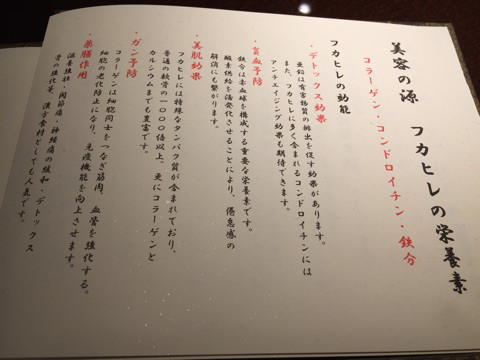 美容の源　フカヒレの栄養素
コラーゲン・コンドロイチン・鉄分
フカヒレの効能
・デトックス効果
亜鉛は有害物質の排出を促す効果があります。
また、フカヒレに多く含まれるコンドロイチンには
アンチエイジング効果も期待できます。
・貧血予防
鉄分は赤血球を構成する重要な栄養素です。
酸素供給を活発化させることにより、倦怠感の
解消にも繋がります。
・美肌効果
フカヒレには特殊なタンパク質が含まれており、
普通の軟骨の一〇〇〇倍以上。更にコラーゲンと
カルシウムまでも豊富です。
・ガン予防
コラーゲンは細胞同士をつなぎ筋肉、血管を強化する。
細胞の老化防止になり、免疫機能を向上させます。
・薬膳作用
滋養強壮・関節痛・神経痛の緩和・デトックス
骨の強化等、漢方食材としても人気です。